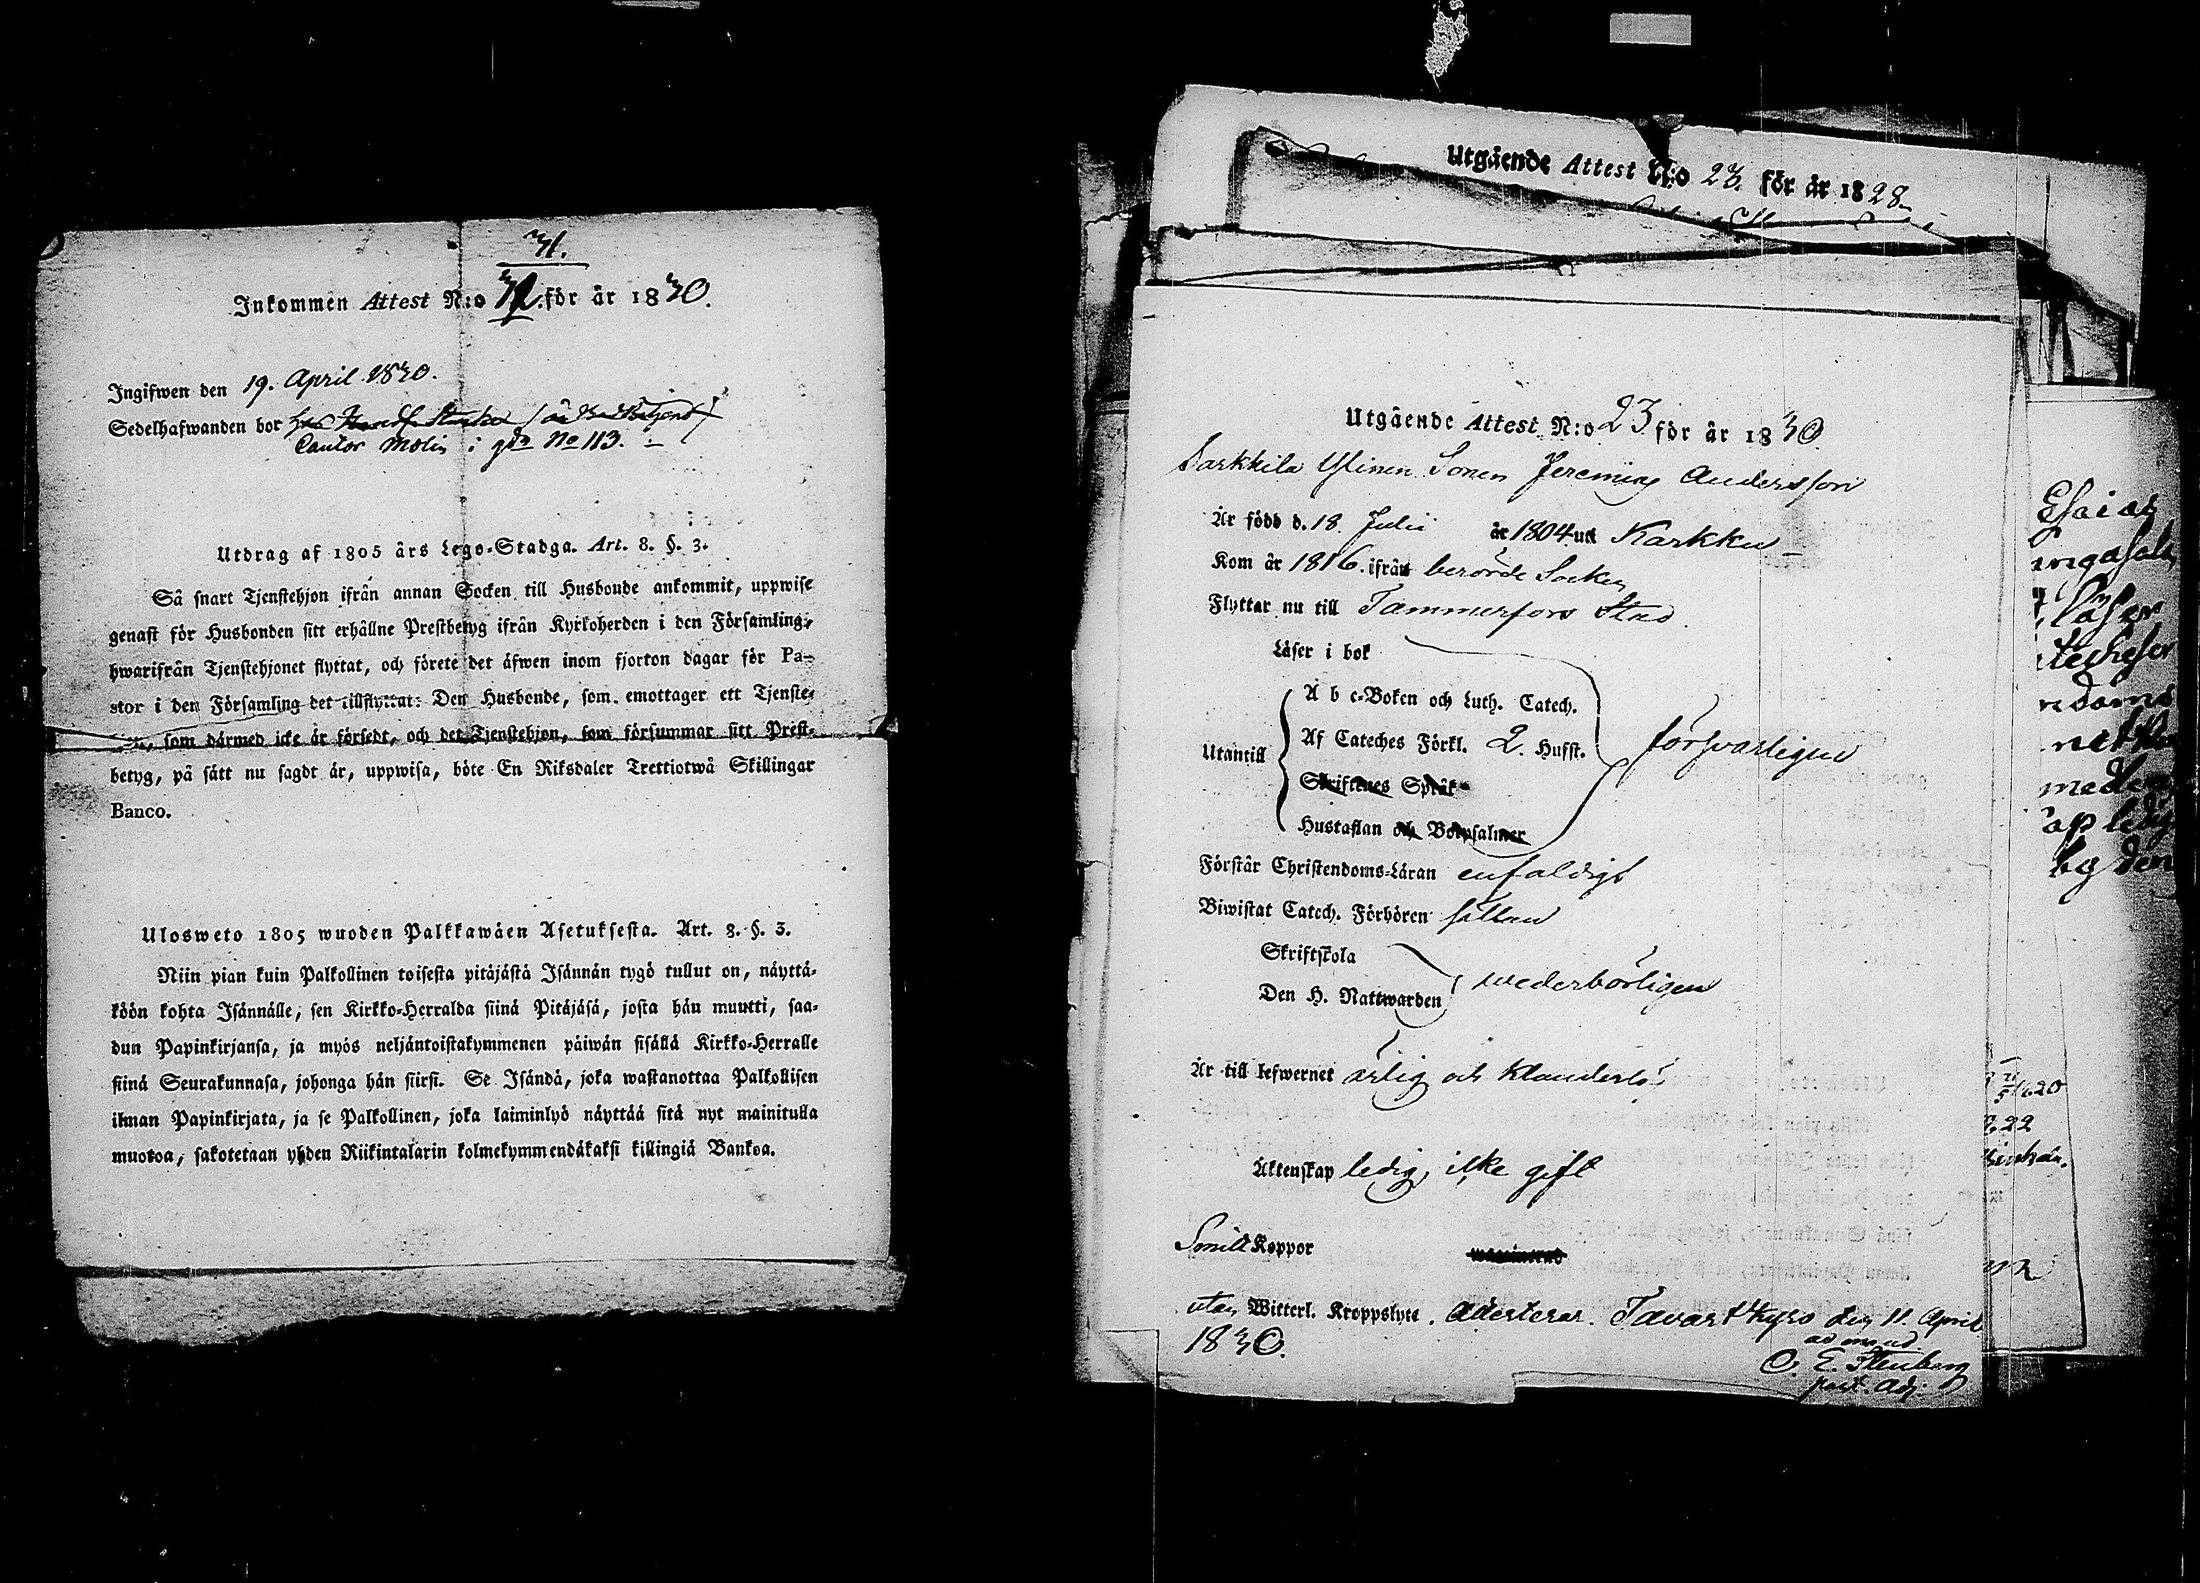 31.
Inkommen Attest N:o för år 1830.
Ingifwen den 19. April 1830.
Sedelhafwanden bor
Cantor Molin i gdn No 113. –
Utdrag af 1805 års Lego-Stadga. Art. 8. §. 3.
Så snart Tjenstehjon ifrån annan Socken till Husbonde ankommit, uppwise
genast för Husbonden sitt erhållne Prestbetyg ifrån Kyrkoherden i den Församling,
hwarifrån Tjenstehjonet flyttat, och förete det äfwen inom fjorton dagar för Pa-
stor i den Församling det tillflyttat: Den Husbonde, som emottager ett Tjenste-
som därmed icke är försedt, och det Tjenstehjon, som försummar sitt Prest-
betyg, på sätt nu sagdt är, uppwisa, böte En Riksdaler Trettiotwå Skillingar
Banco.
Ulosweto 1805 wuoden Palkkawäen Asetuksesta. Art. 8. §. 3.
Niin pian kuin Palkollinen toisesta pitäjästä Isännän tygö tullut on, näyttä-
köön kohta Isännälle, sen Kirkko-Herralda siinä Pitäjäsä, josta hän muutti, saa-
dun Papinkirjansa, ja myös neljäntoistakymmenen päiwän sisällä Kirkko-Herralle
siinä Seurakunnasa, johonga hän siirsi. Se Isändä, joka wastanottaa Palkollisen
ilman Papinkirjata, ja se Palkollinen, joka laiminlyö näyttää sitä nyt mainitulla
muotoa, sakotetaan yhden Riikintalarin kolmekymmendäkaksi killingiä Bankoa.
Utgående Attest N:o 23. för år 1828
Utgående Attest N:o 23 för år 1830.
Sarkkila Ylinen Sonen Jeremias Andersson
Är född d. 18 Julii år 1804 uti Karkku –
Kom år 1816. ifrån berörde Socken
Flyttar nu till Tammerfors Stad.
Läser i bok
Utantill
A b c-Boken och Luth. Catech.
Af Cateches Förkl. 2. Husst.
Skriftenes Språk
Hustaflan och Botpsalmer
försvarligen
Förstår Christendoms-Läran enfaldigt
Biwistat Catech. Förhören sällan
Skriftskola
Den H. Nattwarden
wederbörligen
Är till lefwernet ärlig och klanderlös
Äktenskap ledig, icke gift
Smitt Koppor
utan Witterl. Kroppslyte. Attesterar. Tavastkyro den 11. April
1830.
ad mand.
C. E. Stenberg
past. Adj:
Esaias